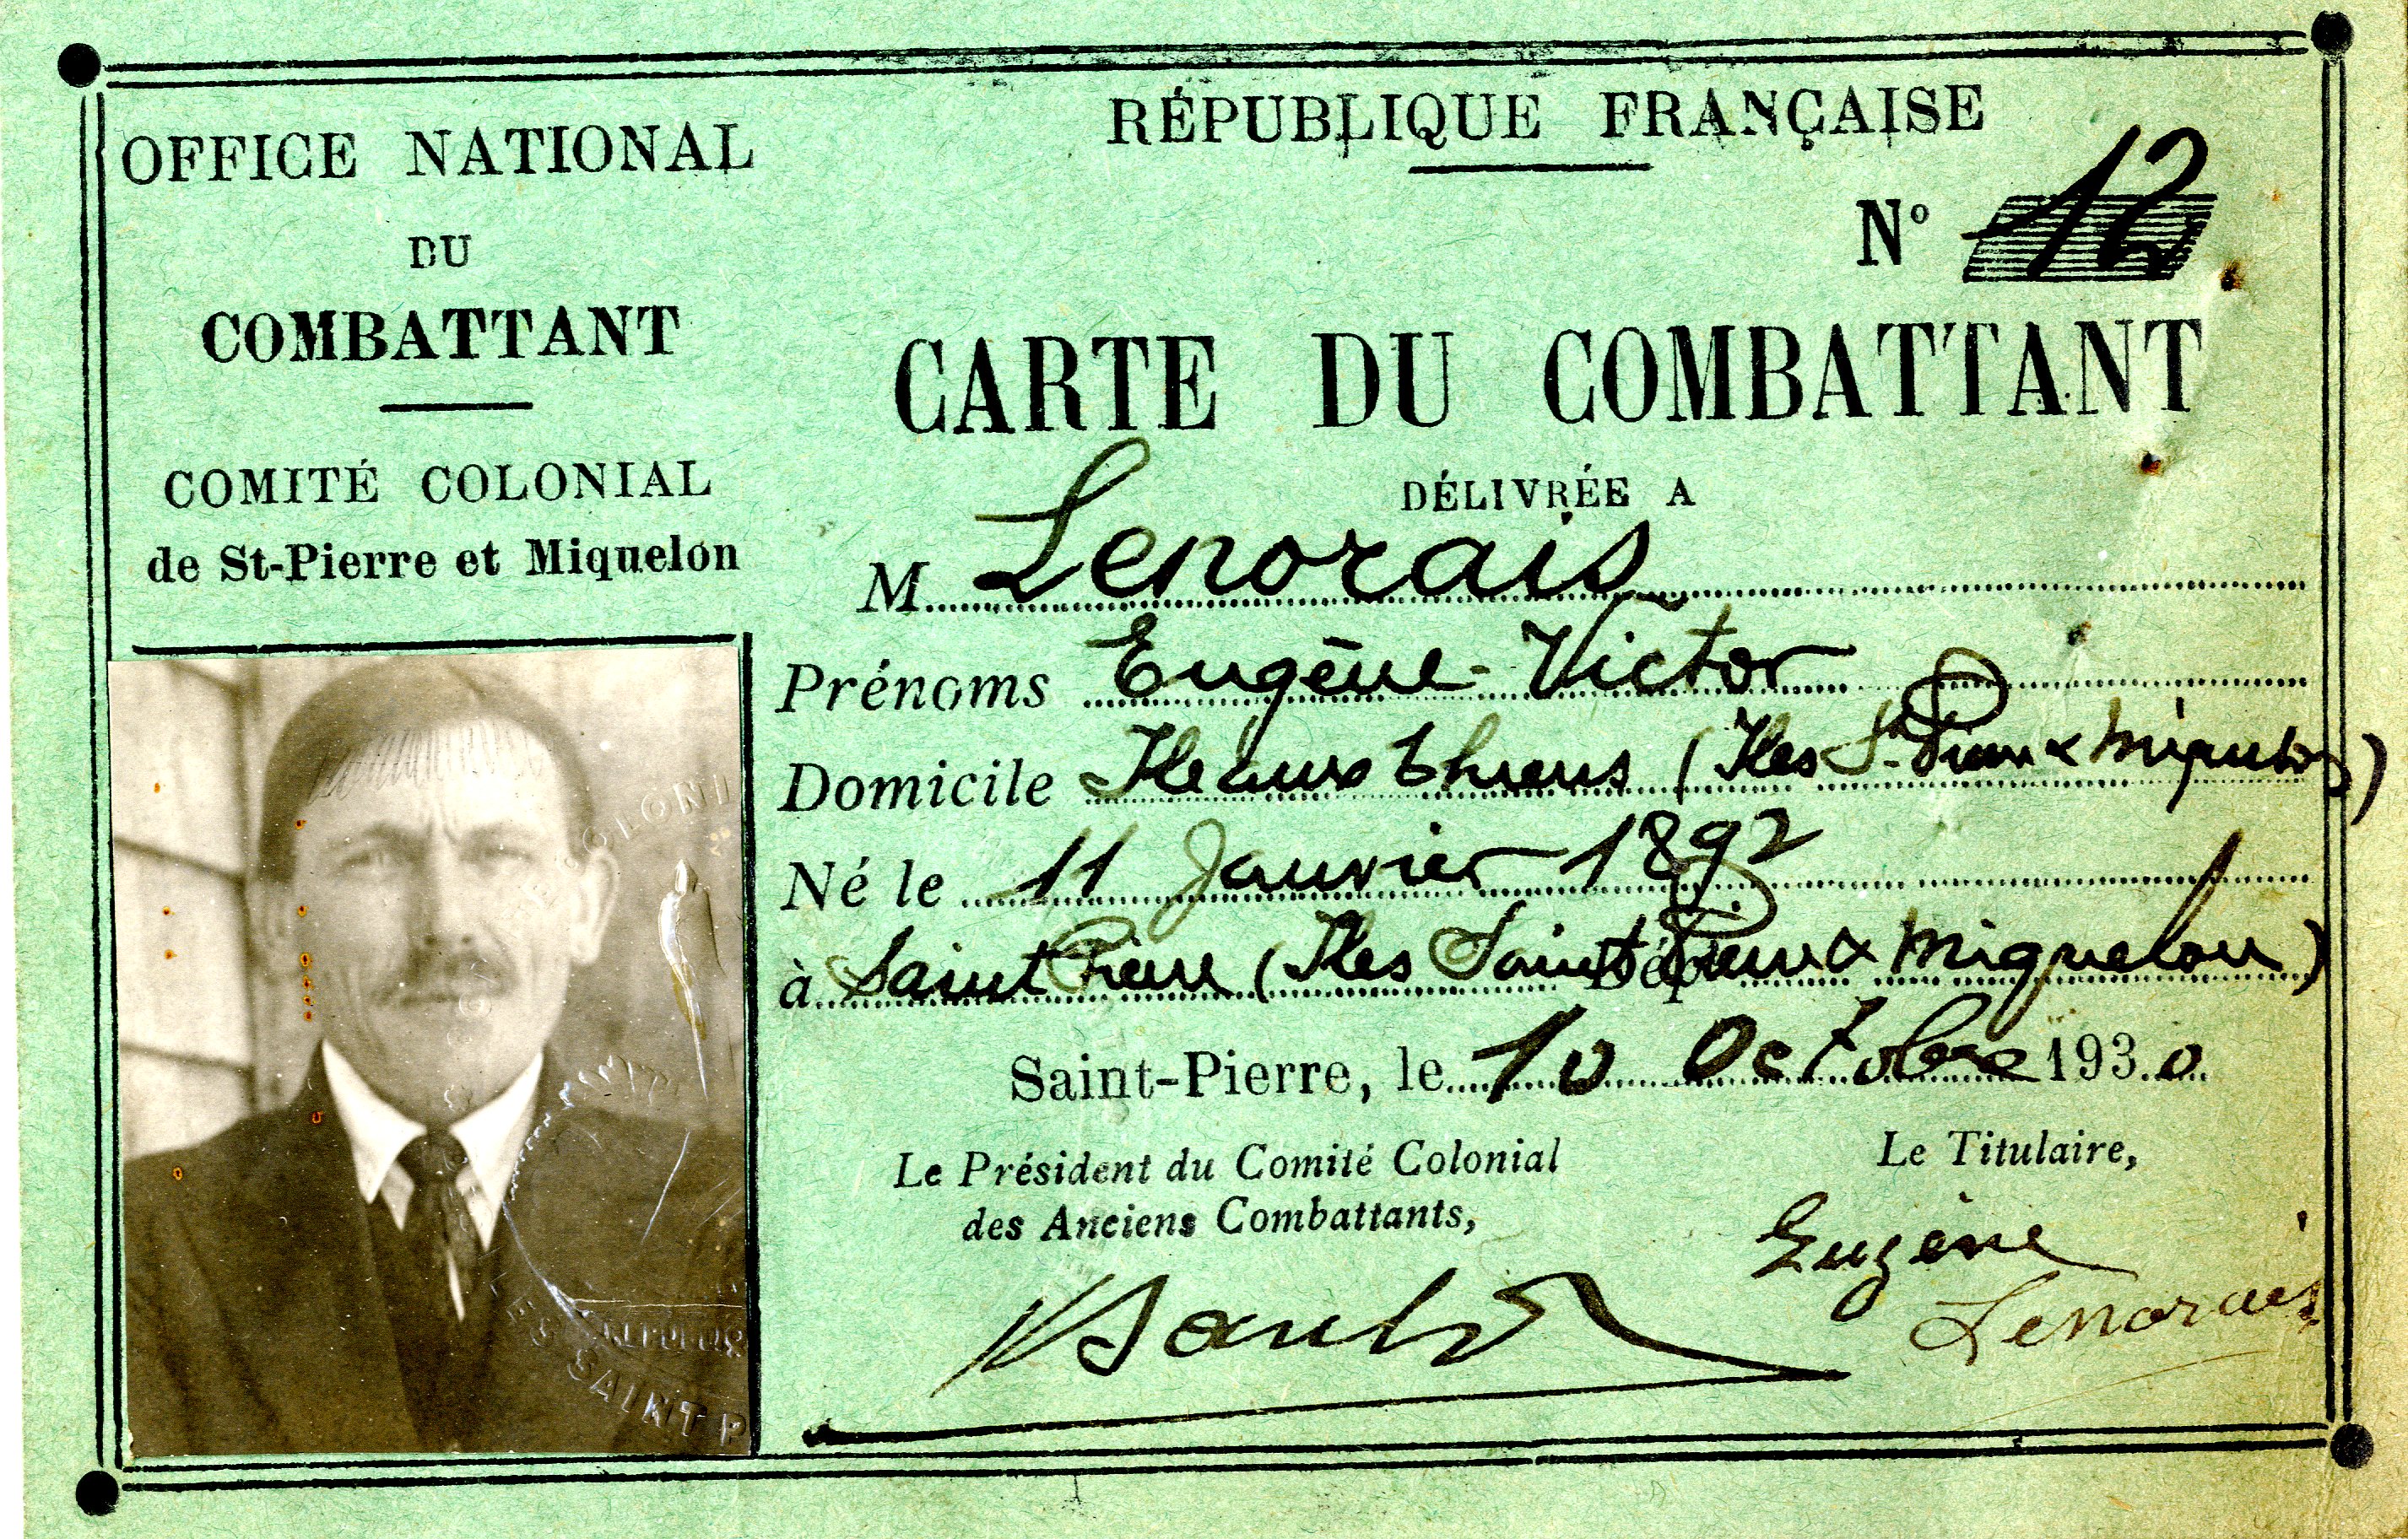 OFFICE NATIONAL
DU
COMBATTANT
COMITÉ COLONIAL
de St-Pierre et Miquelon
RÉPUBLIQUE FRANÇAISE
Nº 12
CARTE DU COMBATTANT
DÉLIVRÉE A
M Lenorais
Prénoms Eugène-Victor
Domicile Ile aux Chiens (Iles St-Pierre & Miquelon)
Né le 11 Janvier 1892
à Saint Pierre (Iles Saint Pierre & Miquelon)
Saint-Pierre, le 10 Octobre 1930
Le Président du Comité Colonial
des Anciens Combattants,
Le Titulaire,
Eugène
Lenorais
COLONI
SAINT P